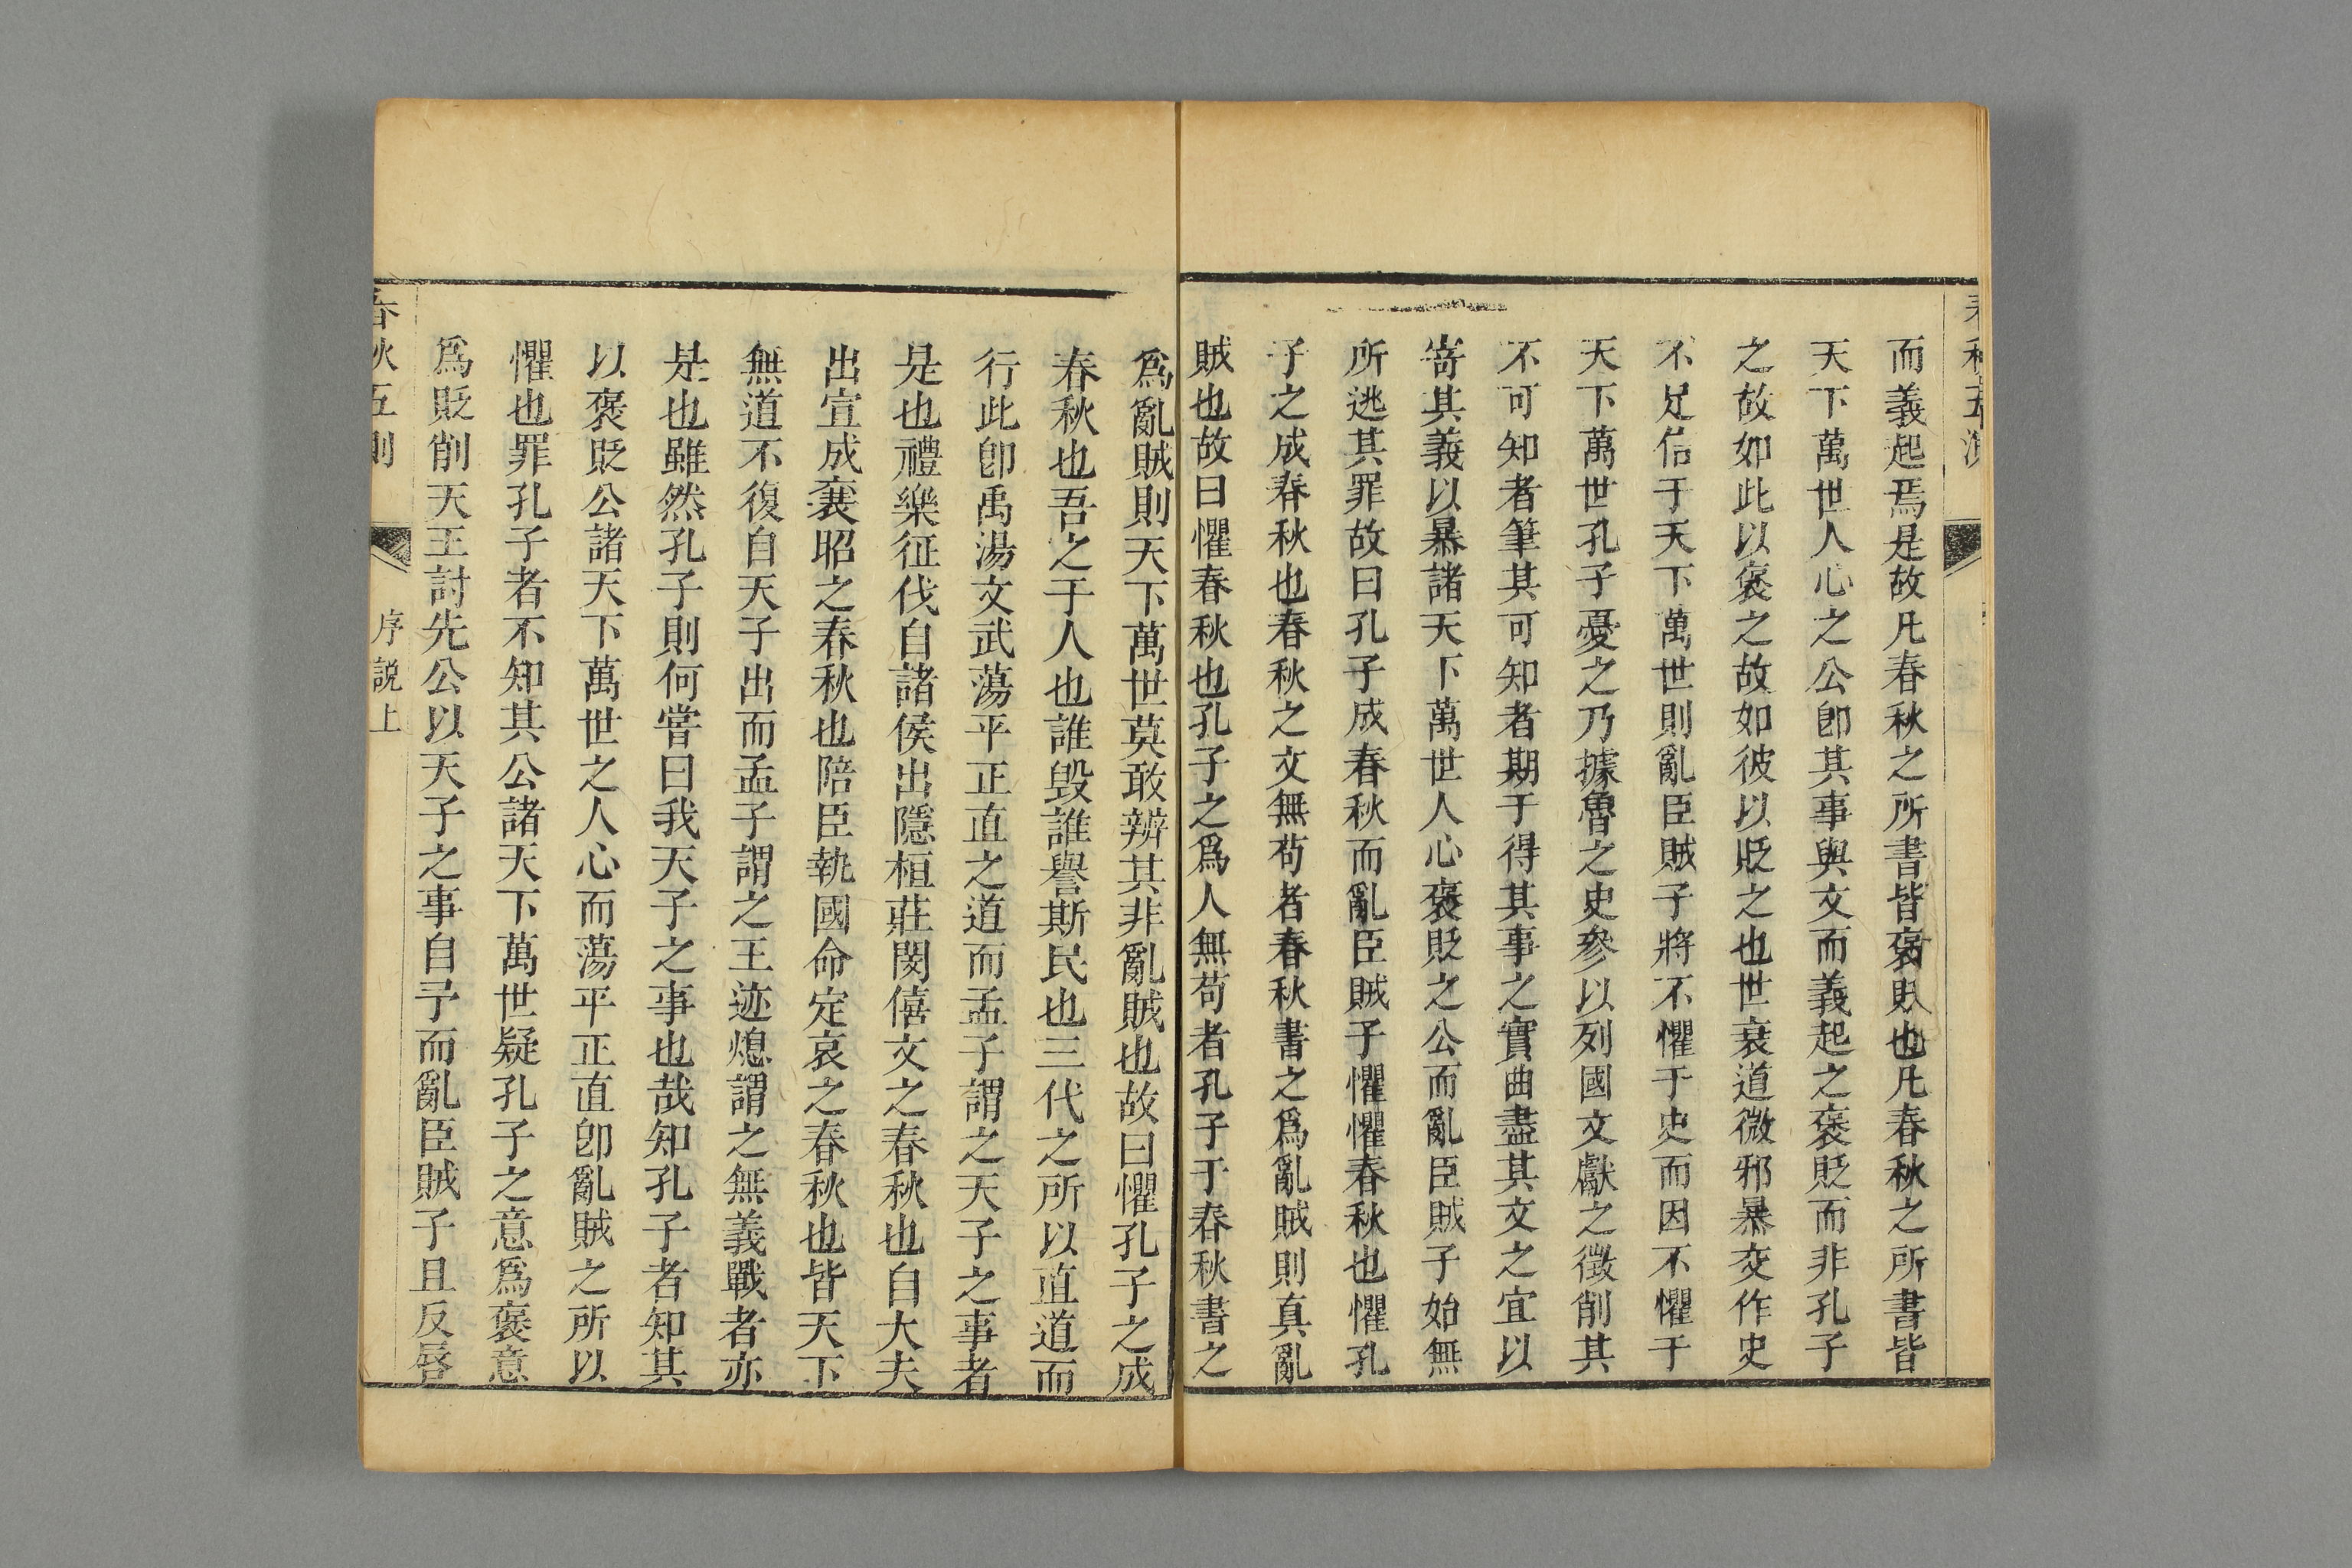 而義起焉是故凡春秋之所書皆褒貶也凡春秋之所書皆
天下萬世人心之公卽其事與文而義起之褒貶而非孔子
之故如此以褒之故如彼以貶之也世衰道微邪暴交作史
不足信于天下萬世則亂臣賊子將不懼于史而因不懼于
天下萬世孔子憂之乃據魯之史參以列國文獻之徵削其
不可知者筆其可知者期于得其事之實曲盡其文之宜以
寄其義以暴諸天下萬世人心褒貶之公而亂臣賊子始無
所逃其罪故曰孔子成春秋而亂臣賊子懼懼春秋也懼孔
子之成春秋也春秋之文無苟者春秋書之爲亂賊則真亂
賊也故曰懼春秋也孔子之爲人無苟者孔子于春秋書之
爲亂賊則天下萬世莫敢辨其非亂賊也故曰懼孔子之成
春秋也吾之于人也誰毀誰譽斯民也三代之所以直道而
行此卽禹湯文武蕩平正直之道而孟子謂之天子之事者
是也禮樂征伐自諸侯出隱桓莊閔僖文之春秋也自大夫
出宣成襄昭之春秋也陪臣執國命定哀之春秋也皆天下
無道不復自天子出而孟子謂之王迹熄謂之無義戰者亦
是也雖然孔子則何嘗曰我天子之事也哉知孔子者知其
以褒貶公諸天下萬世之人心而蕩平正直卽亂賊之所以
懼也罪孔子者不知其公諸天下萬世疑孔子之意爲褒意
爲貶削天王討先公以天子之事自予而亂臣賊子且反脣
春秋五則
序説上